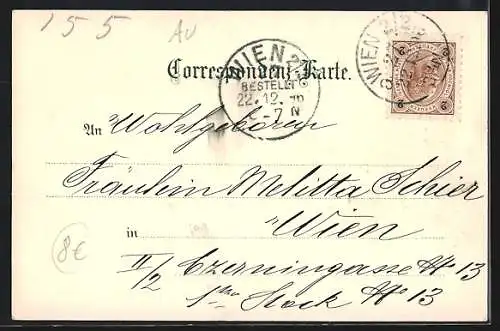 155 AU
WIEN 2/2
Correspondenz-Karte.
BESTELLT
22.12.
-7 N
An Wohlgeboren
Fräulein Melitta Schier
in Wien
II/2 Czerningasse No 13
1ter Stock No 13
8€
2
2